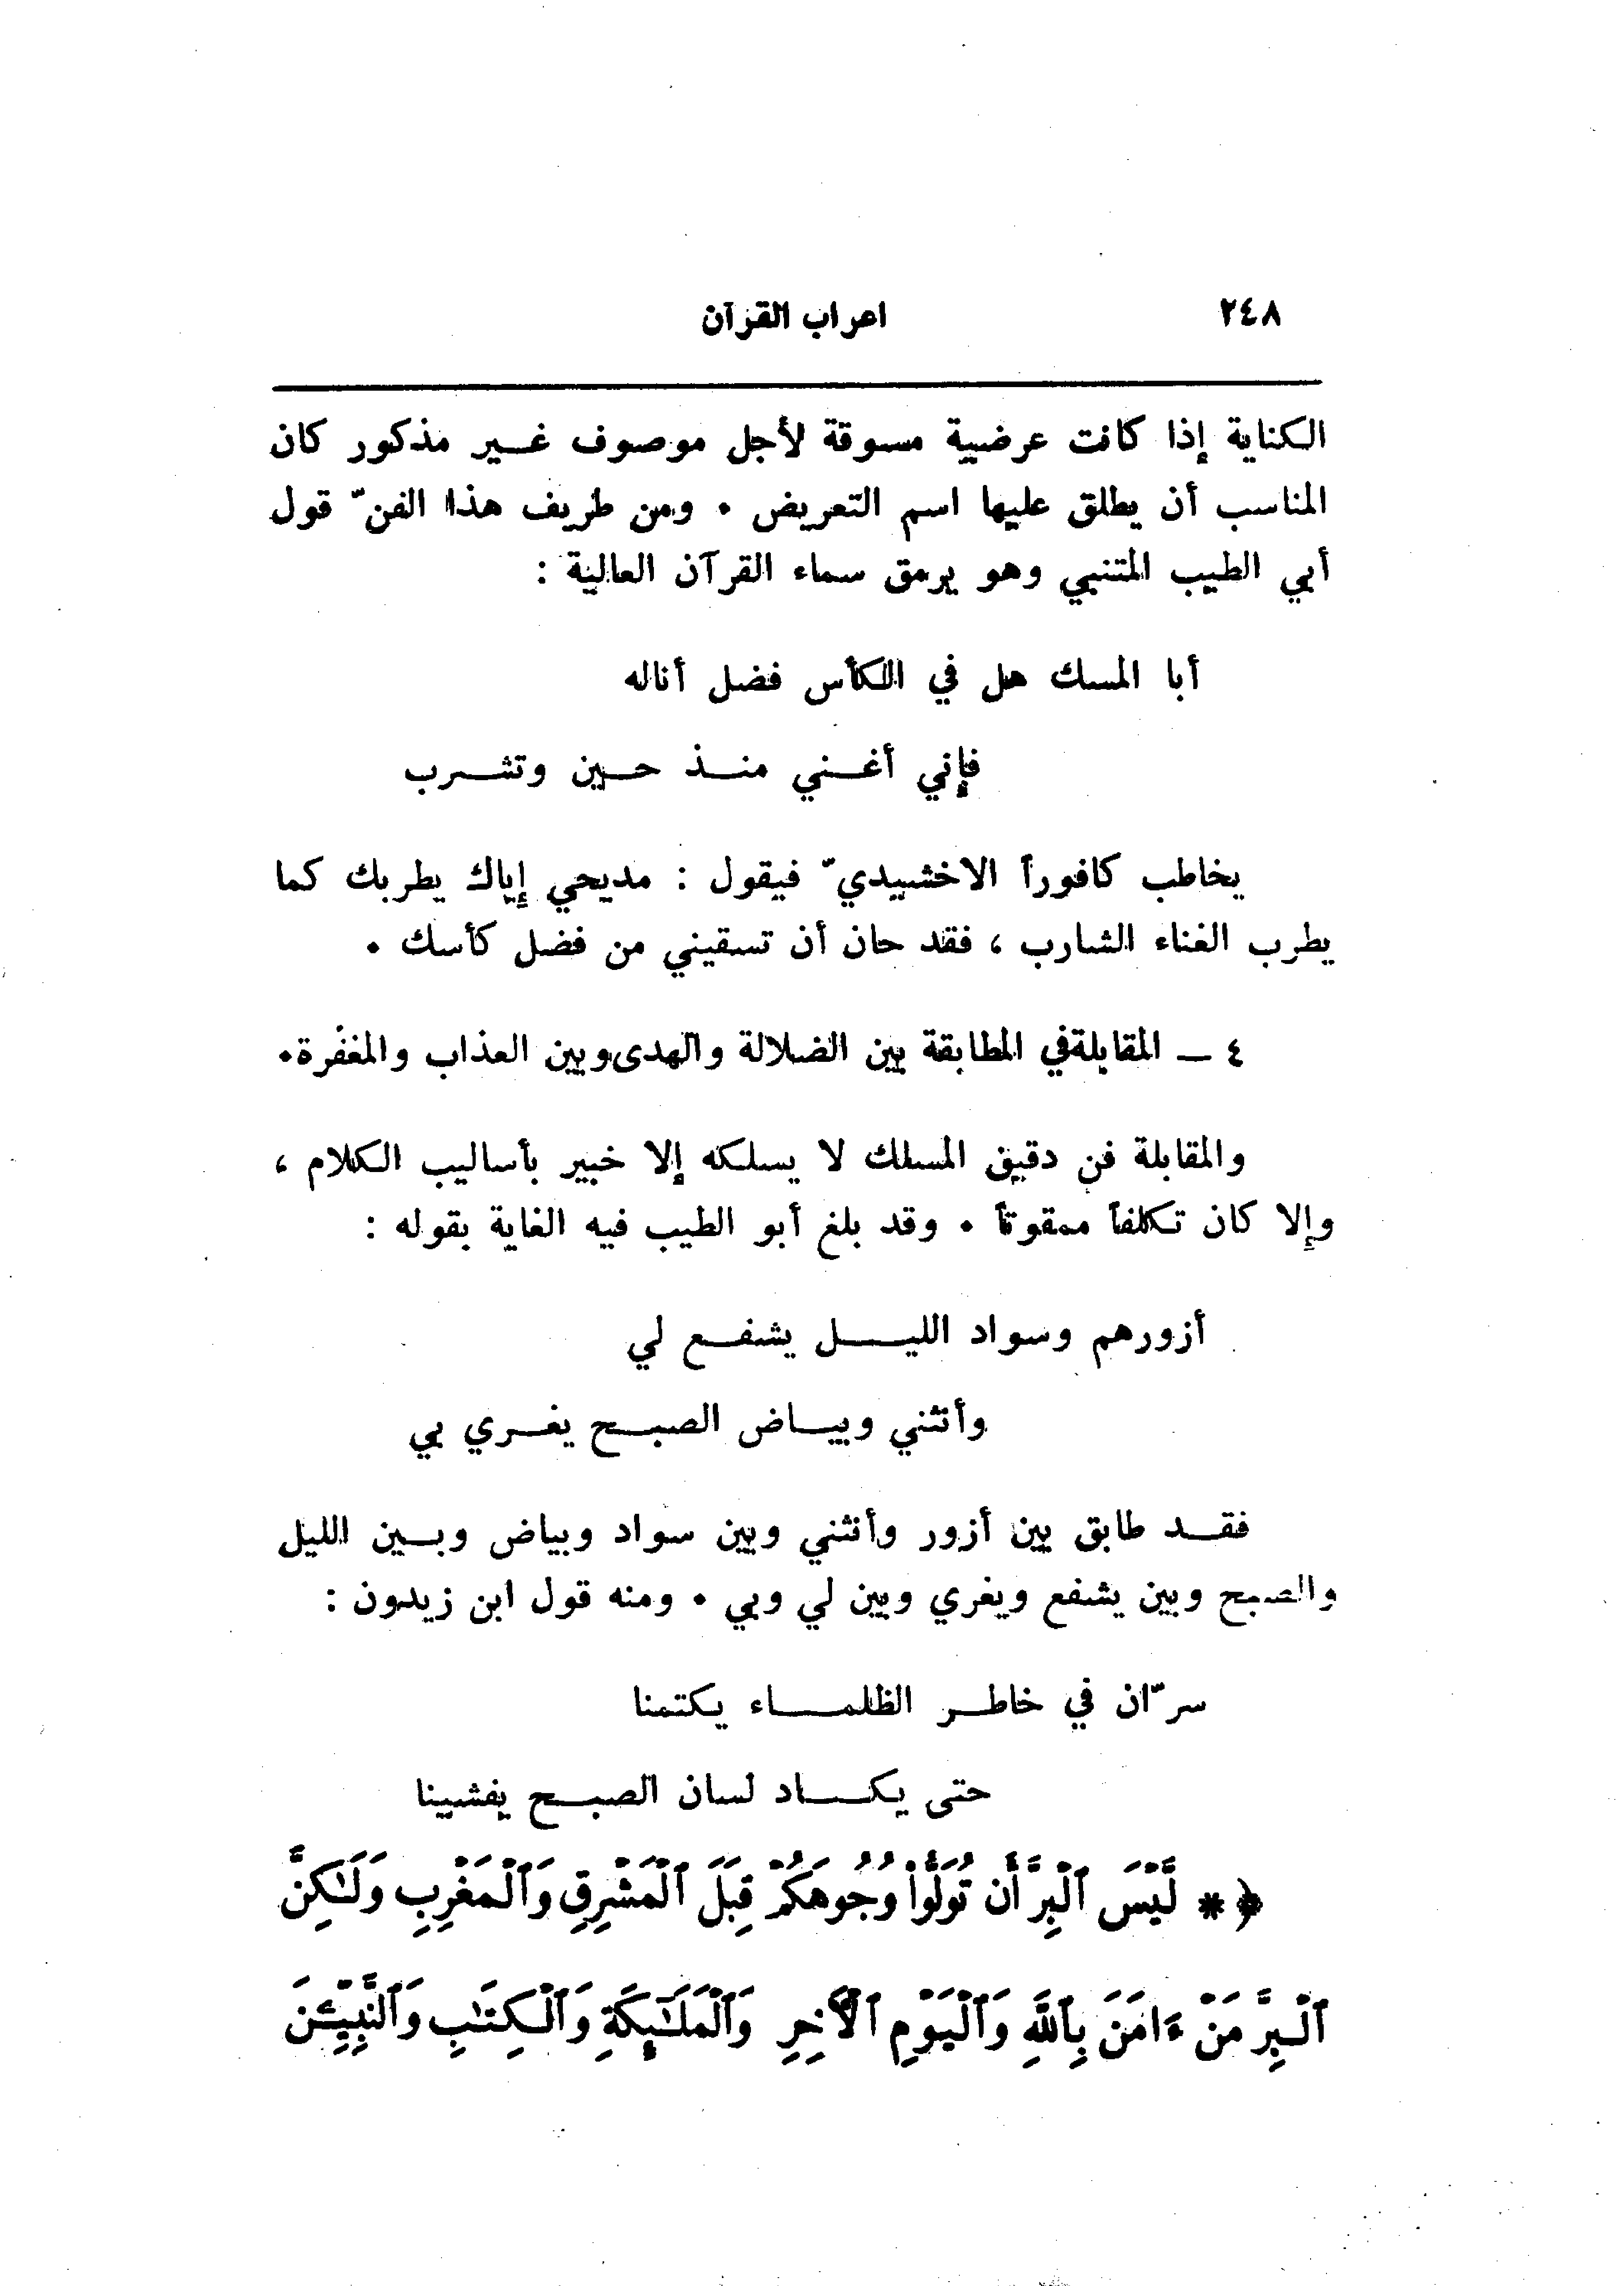 ٢٤٨
اعراب القرآن
الكناية إذا كانت عرضية مسوقة لأجل موصوف غير مذكور كان
المناسب أن يطلق عليها اسم التعريض ٠ ومن طريف هذا الفنّ قول
أبي الطيب المتنبي وهو يرمق سماء القرآن العالية :
أبا المسك هل في الكأس فضل أناله
فإني أغني منذ حين وتشرب
يخاطب كافوراً الاخشيديّ فيقول : مديحي إياك يطربك كما
يطرب الغناء الشارب ، فقد حان أن تسقيني من فضل كأسك ٠
٤ — المقابلة في المطابقة بين الضلالة والهدى وبين العذاب والمغفرة٠
والمقابلة فن دقيق المسلك لا يسلكه إلا خبير بأساليب الكلام ،
وإلا كان تكلفاً ممقوتاً ٠ وقد بلغ أبو الطيب فيه الغاية بقوله :
أزورهم وسواد الليل يشفع لي
وأنثني وبياض الصبح يغري بي
فقد طابق بين أزور وأنثني وبين سواد وبياض وبين الليل
والصبح وبين يشفع ويغري وبين لي وبي ٠ ومنه قول ابن زيدون :
سرّان في خاطر الظلماء يكتمنا
حتى يكاد لسان الصبح يفشينا
﴿ * لَّيْسَ ٱلْبِرَّ أَن تُوَلُّوا۟ وُجُوهَكُمْ قِبَلَ ٱلْمَشْرِقِ وَٱلْمَغْرِبِ وَلَـٰكِنَّ
ٱلْبِرَّ مَنْ ءَامَنَ بِٱللَّهِ وَٱلْيَوْمِ ٱلْأَخِرِ وَٱلْمَلَـٰٓئِكَةِ وَٱلْكِتَـٰبِ وَٱلنَّبِيِّـۧنَ